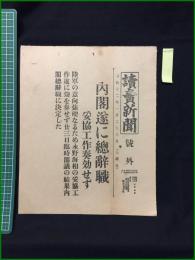 讀賣新聞
號外
內閣遂に總辭職
妥協工作奏効せず
陸軍の意向强硬なるため永野海相の妥協工
作遂に効を奏せず廿三日臨時閣議の結果內
閣總辭職に決定した